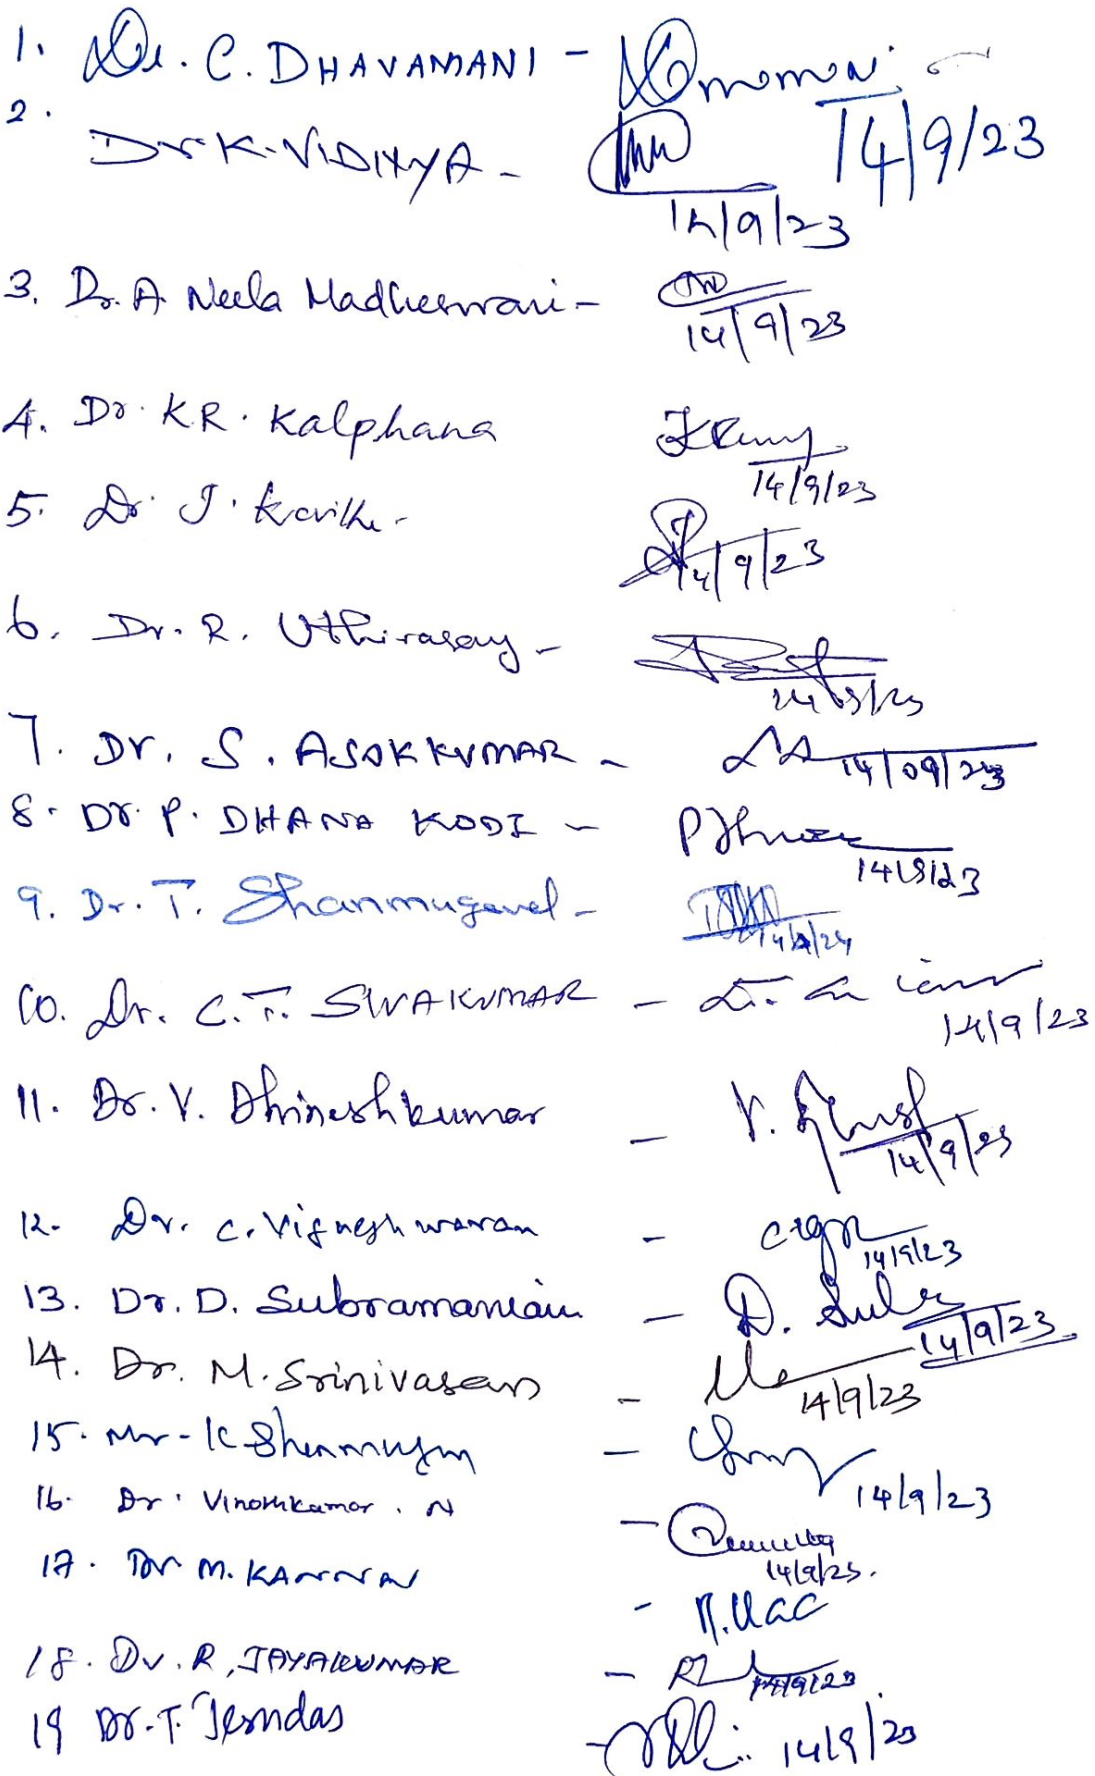 1. Dr. C. DHAVAMANI -
14/9/23
2.
Dr K. VIDHYA -
14/9/23
3. Dr. A Neela Madheswari -
14/9/23
4. Dr. K.R. Kalphana
14/9/23
5. Dr J. Kavitha -
14/9/23
6. Dr. R. Uthirasamy -
7. Dr. S. ASOKKUMAR -
14/09/23
8. Dr. P. DHANA KODI -
14/9/23
9. Dr. T. Shanmugavel -
10. Dr. C.T. SIVAKUMAR -
14/9/23
11. Dr. V. Dhineshkumar - V.
14/9/23
12. Dr. C. Vigneshwaran -
14/9/23
13. Dr. D. Subramaniam - D.
14/9/23
14. Dr. M. Srinivasan -
14/9/23
15. Mr - K Shanmugam -
14/9/23
16. Dr. Vinothkumar . N -
14/9/23.
17. Dr M. KANNAN -
18. Dr. R, JAYAKUMAR -
14/9/23
19 Dr. T. Jerndas
14/9/23